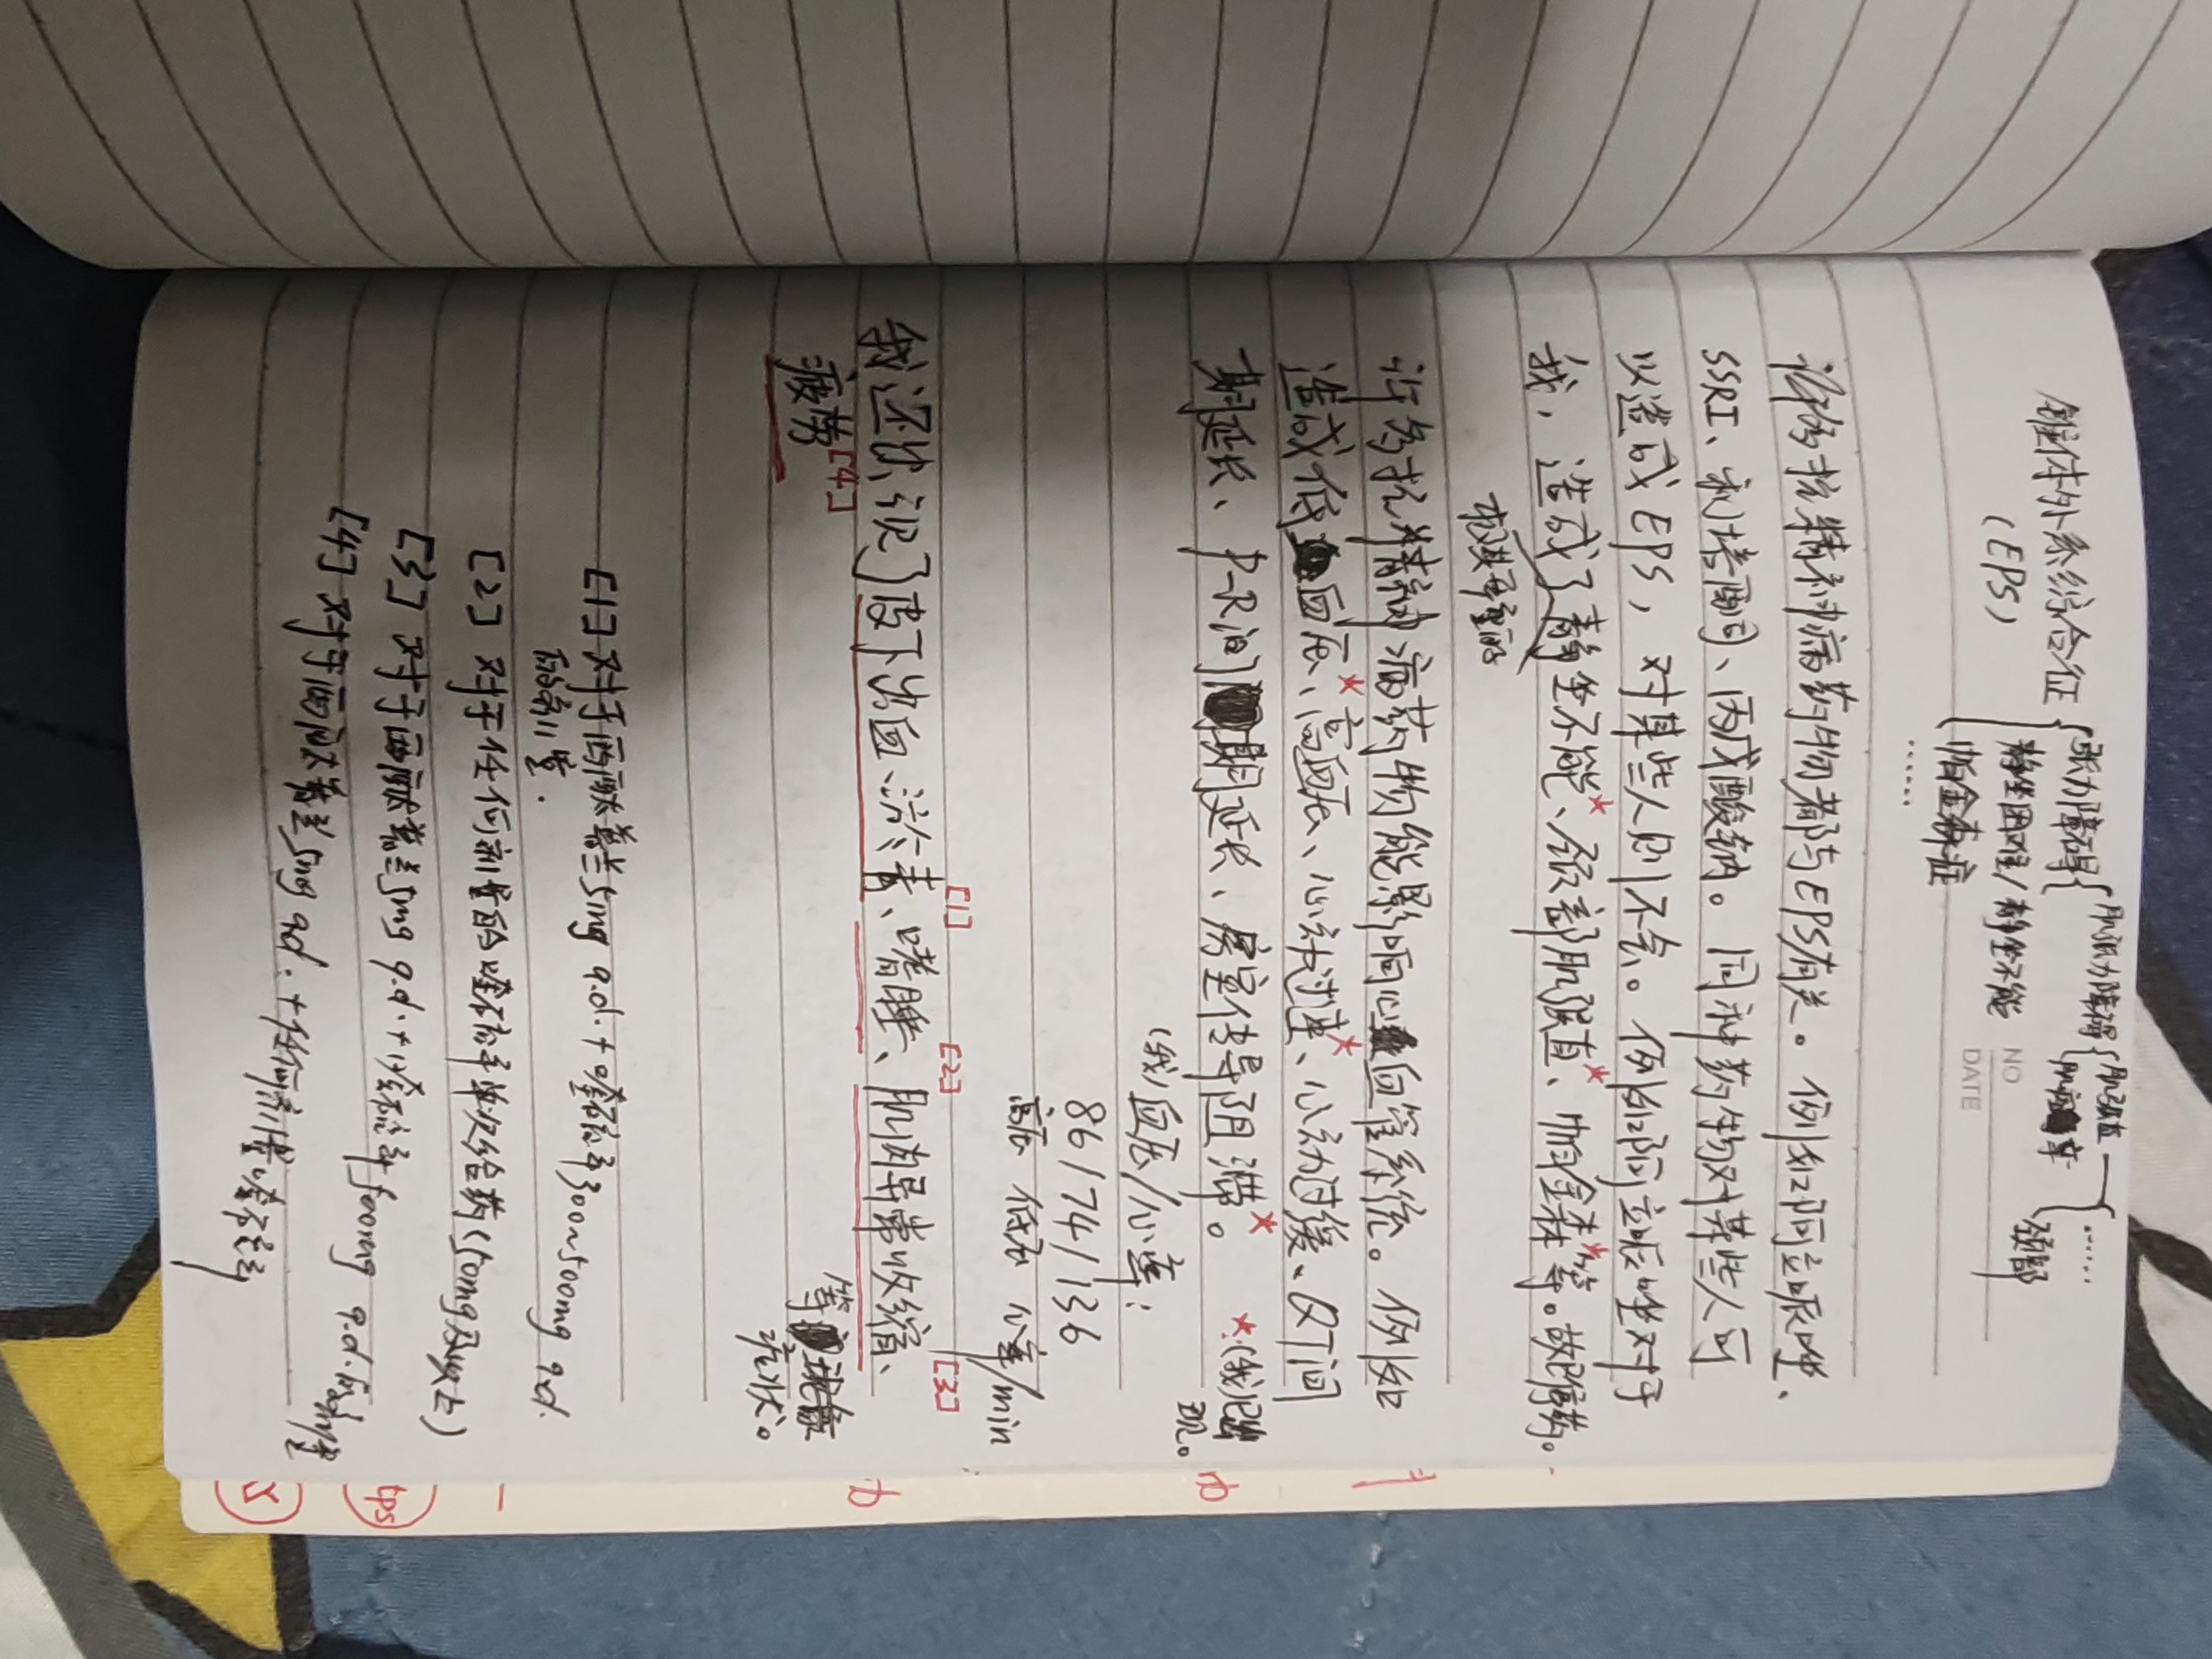 锥体外系综合征
(EPS)
张力障碍
静坐困难/静坐不能
帕金森症
……
肌张力障碍
肌强直
……
颈部
NO
DATE
许多抗精神病药物都与EPS有关。例如阿立哌唑、
SSRI、利培酮、丙戊酸钠。同种药物对某些人可
以造成EPS,对某些人则不会。例如阿立哌唑对于
我,造成了静坐不能*、颈部肌强直*、帕金森*等。故停药。
尤其
许多抗精神病药物能影响心血管系统。例如
造成低血压*、高血压、心动过速*、心动过缓、QT间
期延长、P-R间期延长、房室传导阻滞*。
*:(我)已出
现。
(我)血压/心率:
86/74/136
高压 低压 心率/min
我还出现了皮下出血淤青[1]、嗜睡[2]、肌肉异常收缩[3]、
疲劳[4]
等
症状。
[1] 对于西酞普兰5mg q.d. + 喹硫平300~500mg q.d.
的剂量.
[2] 对于任何剂量的喹硫平单次给药(50mg及以上)
[3] 对于西酞普兰5mg q.d. + 喹硫平500mg q.d.的剂量
[4] 对于西酞普兰5mg q.d. + 任何剂量喹硫平
tps